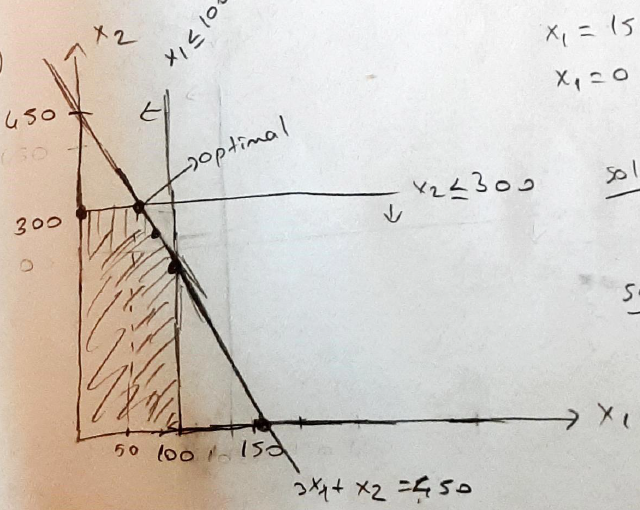 x2
x1 ≤ 100
x1 = 15
x1 = 0
450
optimal
x2 ≤ 300
sol
300
x1
50 100 150
3x1 + x2 = 450